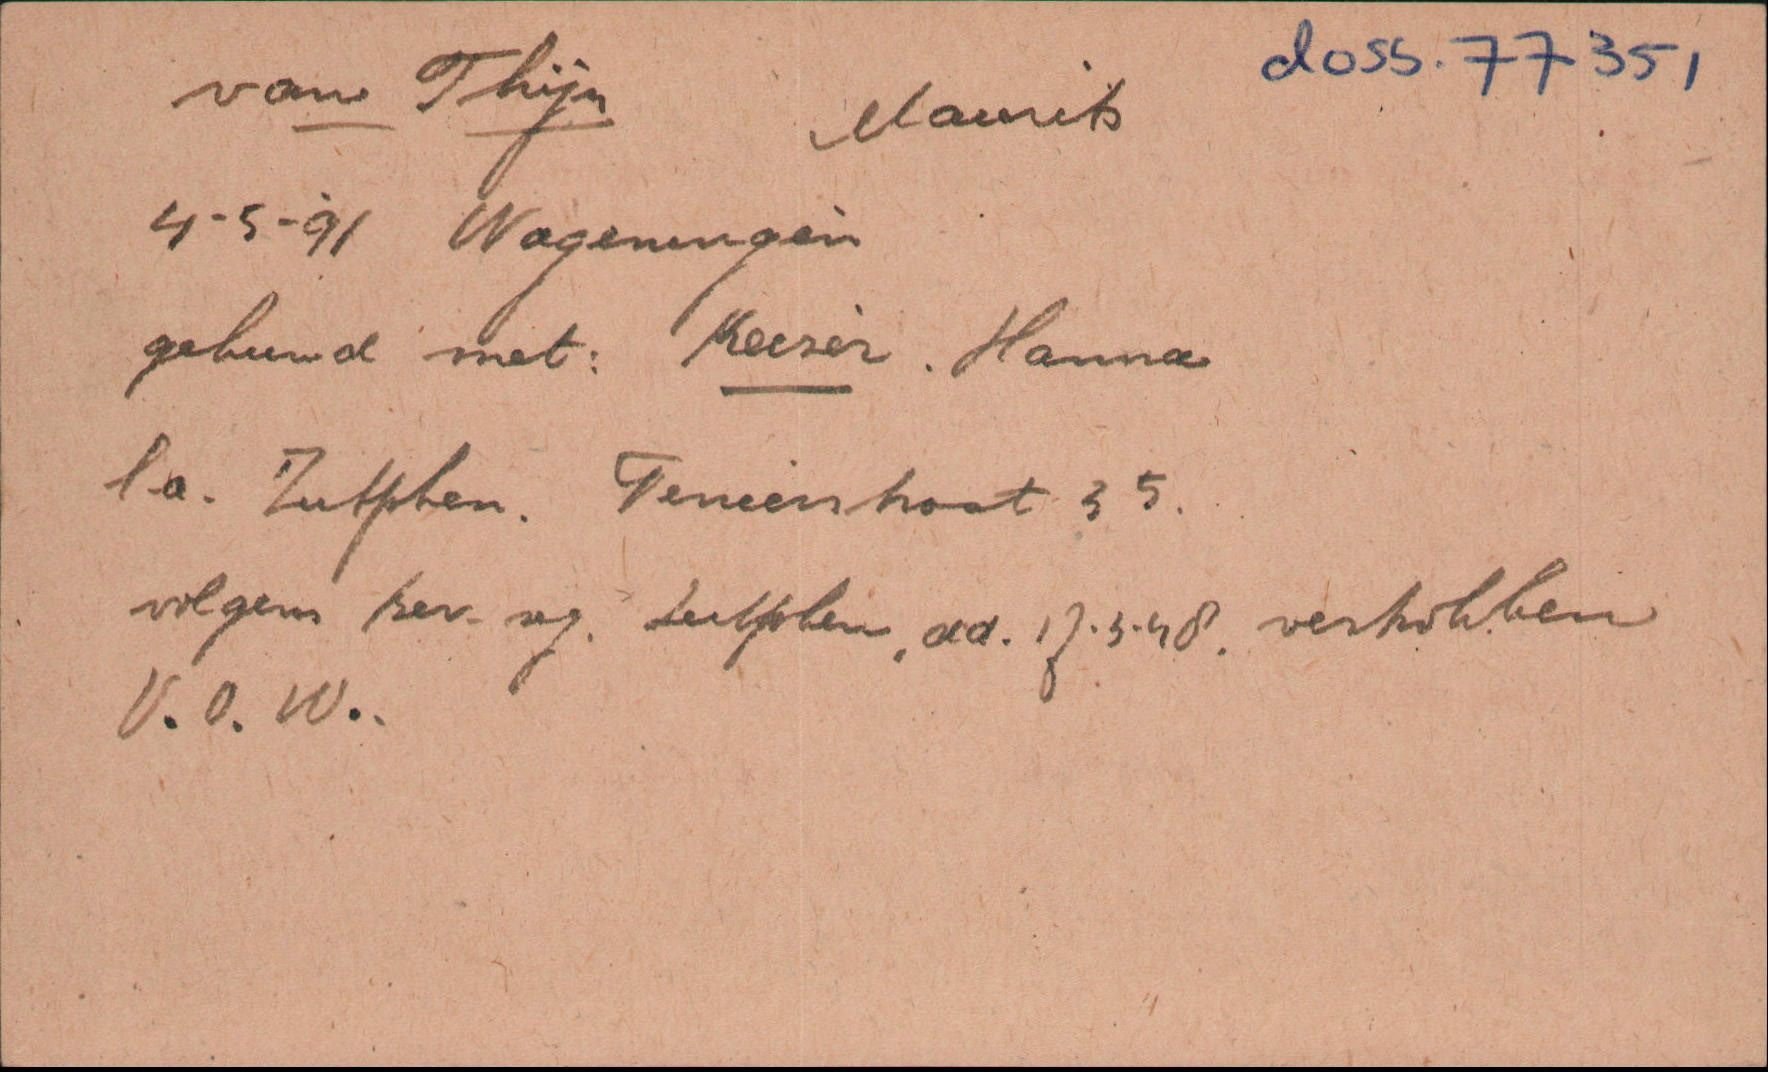 doss. 77351
van Thijn Maurits
4-5-91 Wageningen
gehuwd met: Keizer. Hanna
l.a. Zutphen. Teniersstraat 35.
volgens bev. reg. Zutphen, dd. 17.3.48. vertrokken
V.O.W..